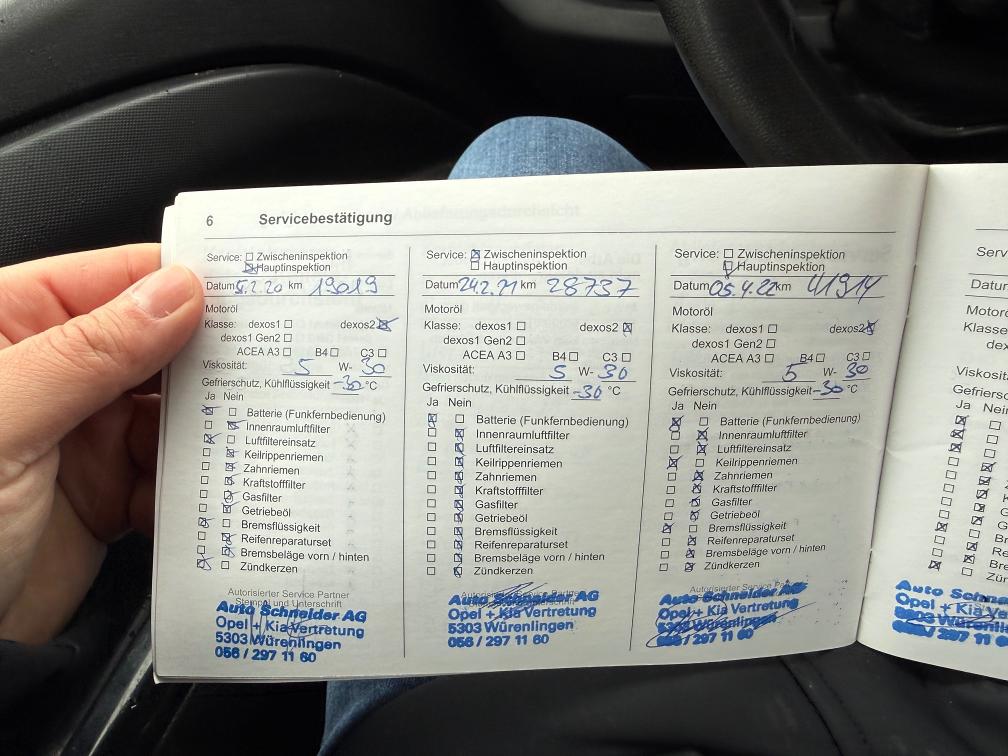 6 Servicebestätigung
Service: Zwischeninspektion
Hauptinspektion
Datum 5.2.20 km 19019
Motoröl
Klasse: dexos1 dexos2
dexos1 Gen2
ACEA A3 B4 C3
Viskosität: 5 W- 30
Gefrierschutz, Kühlflüssigkeit -30 °C
Ja Nein
Batterie (Funkfernbedienung)
Innenraumluftfilter
Luftfiltereinsatz
Keilrippenriemen
Zahnriemen
Kraftstofffilter
Gasfilter
Getriebeöl
Bremsflüssigkeit
Reifenreparaturset
Bremsbeläge vorn / hinten
Zündkerzen
Autorisierter Service Partner
Stempel und Unterschrift
Auto Schneider AG
Opel + Kia Vertretung
5303 Würenlingen
056 / 297 11 60
Service: Zwischeninspektion
Hauptinspektion
Datum 24.2.21 km 28737
Motoröl
Klasse: dexos1 dexos2
dexos1 Gen2
ACEA A3 B4 C3
Viskosität: 5 W- 30
Gefrierschutz, Kühlflüssigkeit -30 °C
Ja Nein
Batterie (Funkfernbedienung)
Innenraumluftfilter
Luftfiltereinsatz
Keilrippenriemen
Zahnriemen
Kraftstofffilter
Gasfilter
Getriebeöl
Bremsflüssigkeit
Reifenreparaturset
Bremsbeläge vorn / hinten
Zündkerzen
Auto Schneider AG
Opel + Kia Vertretung
5303 Würenlingen
056 / 297 11 60
Service: Zwischeninspektion
Hauptinspektion
Datum 05.4.22 km 41914
Motoröl
Klasse: dexos1 dexos2
dexos1 Gen2
ACEA A3 B4 C3
Viskosität: 5 W- 30
Gefrierschutz, Kühlflüssigkeit -30 °C
Ja Nein
Batterie (Funkfernbedienung)
Innenraumluftfilter
Luftfiltereinsatz
Keilrippenriemen
Zahnriemen
Kraftstofffilter
Gasfilter
Getriebeöl
Bremsflüssigkeit
Reifenreparaturset
Bremsbeläge vorn / hinten
Zündkerzen
Autorisierter Service Partner
Auto Schneider AG
Opel + Kia Vertretung
5303 Würenlingen
056 / 297 11 60
Ja Nein
Auto
Opel + Kia
297 11